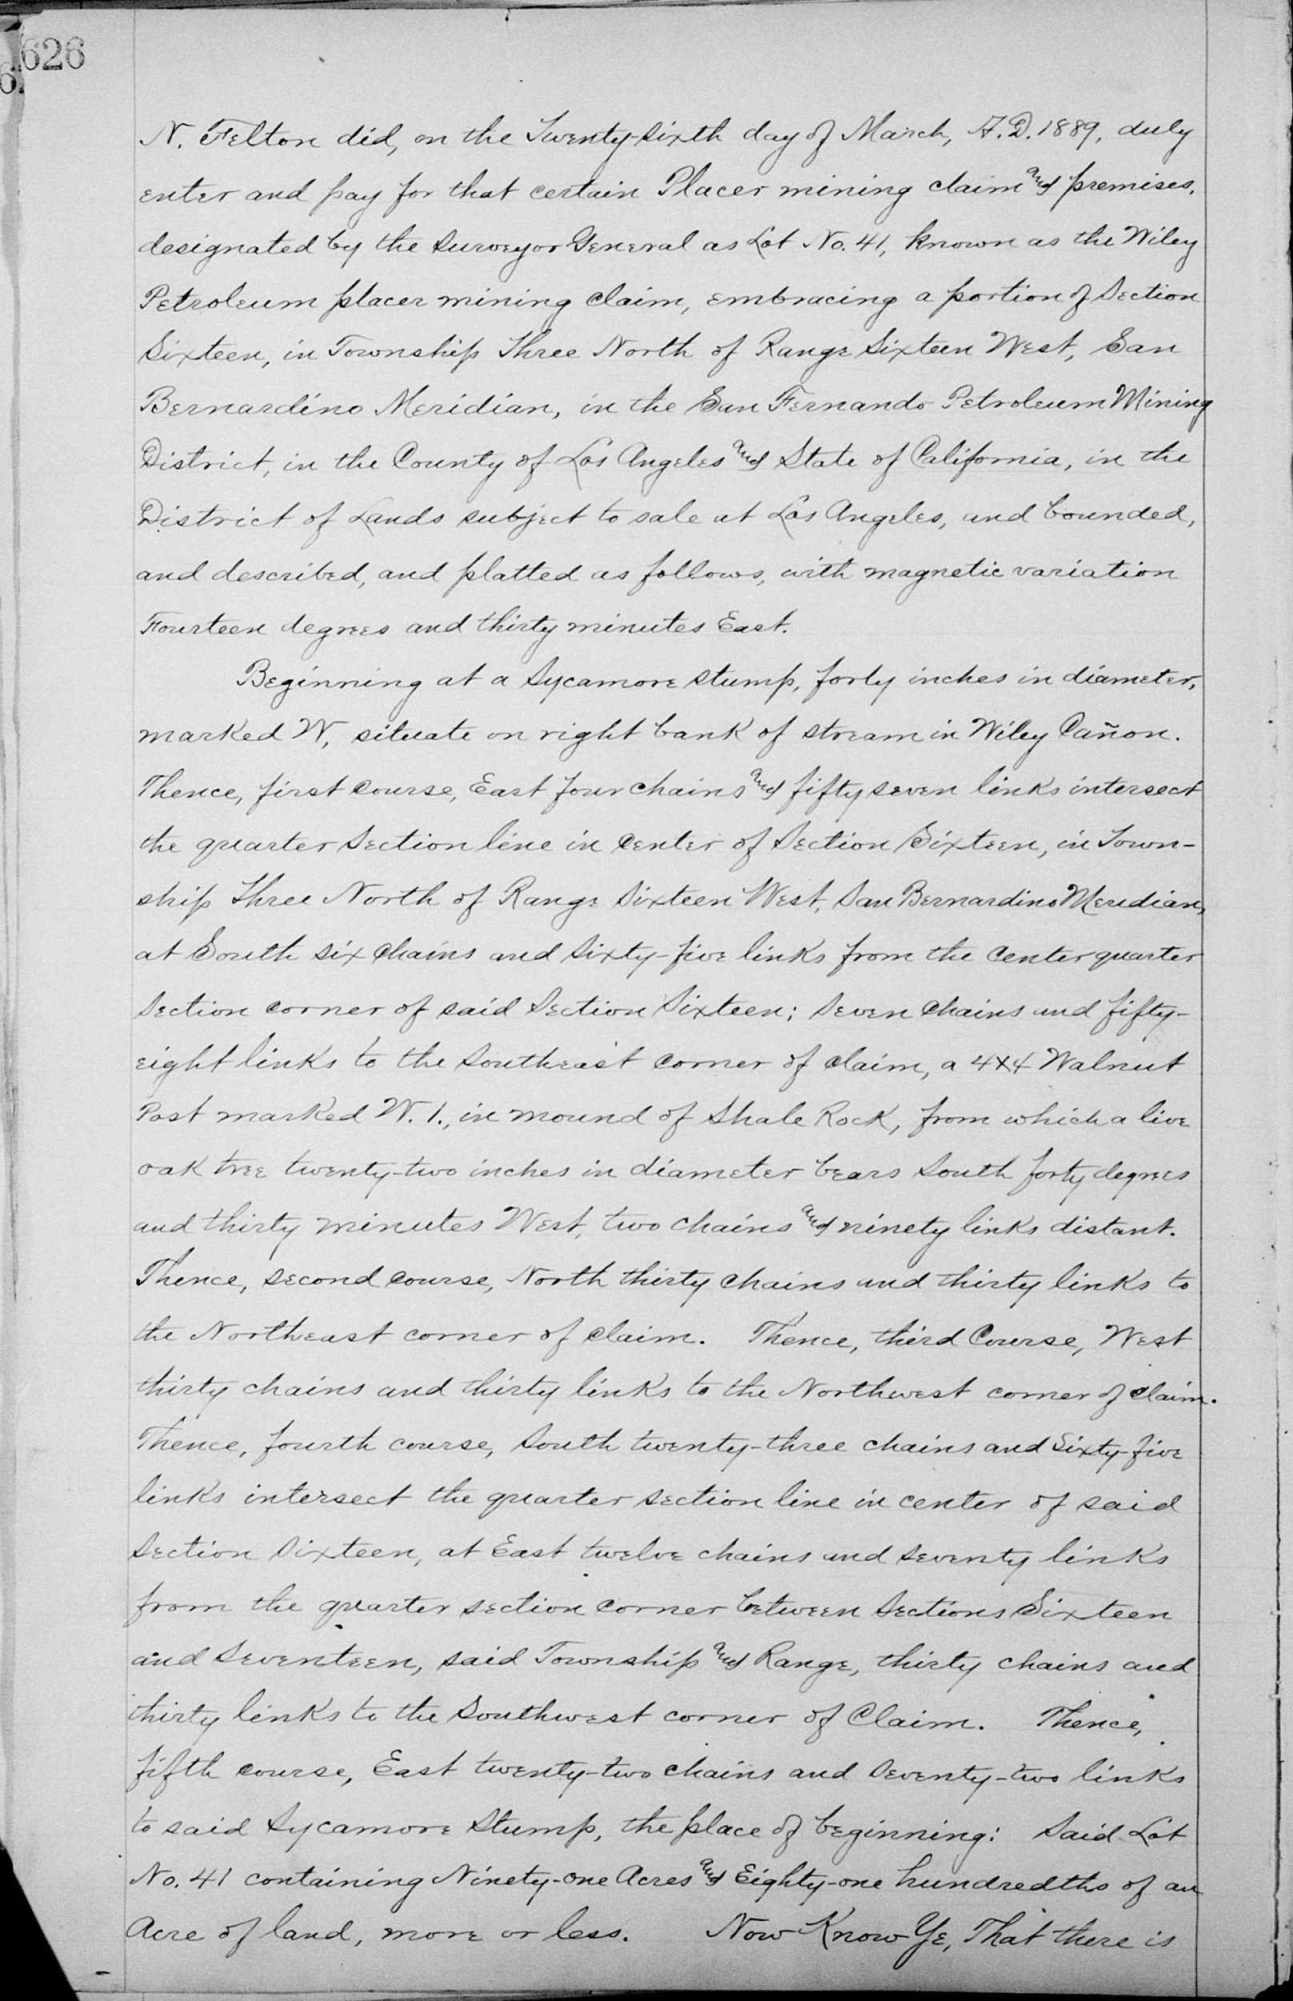 626
6
N. Felton did, on the Twenty-sixth day of March, A.D. 1889, duly
enter and pay for that certain Placer mining claim and premises,
designated by the Surveyor General as Lot No. 41, known as the Wiley
Petroleum placer mining claim, embracing a portion of Section
Sixteen, in Township Three North of Range Sixteen West, San
Bernardino Meridian, in the San Fernando Petroleum Mining
District, in the County of Los Angeles and State of California, in the
District of Lands subject to sale at Los Angeles, and bounded,
and described, and platted as follows, with magnetic variation
Fourteen degrees and thirty minutes East.
Beginning at a Sycamore stump, forty inches in diameter,
marked W, situate on right bank of stream in Wiley Cañon.
Thence, first course, East four chains and fifty seven links intersect
the quarter Section line in center of Section Sixteen, in Town-
ship Three North of Range Sixteen West, San Bernardino Meridian,
at South six chains and sixty-five links from the center quarter
Section corner of said Section Sixteen; seven chains and fifty-
eight links to the Southeast corner of claim, a 4x4 Walnut
Post marked W. 1., in mound of Shale Rock, from which a live
oak tree twenty-two inches in diameter bears South forty degrees
and thirty minutes West, two chains and ninety links distant.
Thence, second course, North thirty chains and thirty links to
the Northeast corner of claim. Thence, third Course, West
thirty chains and thirty links to the Northwest corner of claim.
Thence, fourth course, South twenty-three chains and Sixty-five
links intersect the quarter section line in center of said
Section Sixteen, at East twelve chains and seventy links
from the quarter section corner between Sections Sixteen
and Seventeen, said Township and Range, thirty chains and
thirty links to the Southwest corner of Claim. Thence,
fifth course, East twenty-two chains and seventy-two links
to said Sycamore Stump, the place of beginning: Said Lot
No. 41 containing Ninety-one Acres and Eighty-one hundredths of an
Acre of land, more or less. Now Know Ye, That there is